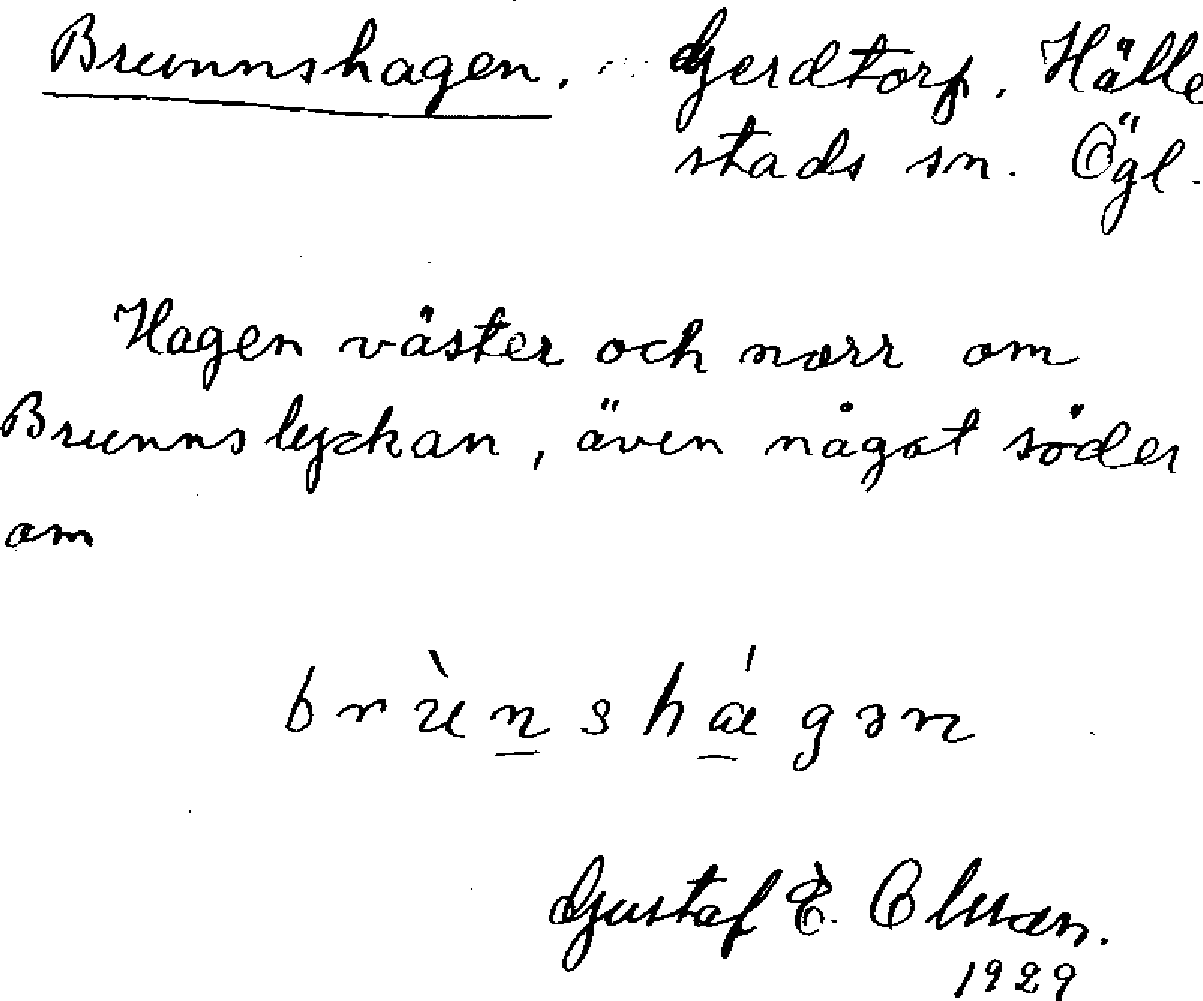 Brunnshagen. Gerdtorp. Hälle
stads sn. Ögl.
Hagen väster och norr om
Brunnslyckan, även något söder
om
brùn̲shá̲gən
Gustaf E. Olsson.
1929